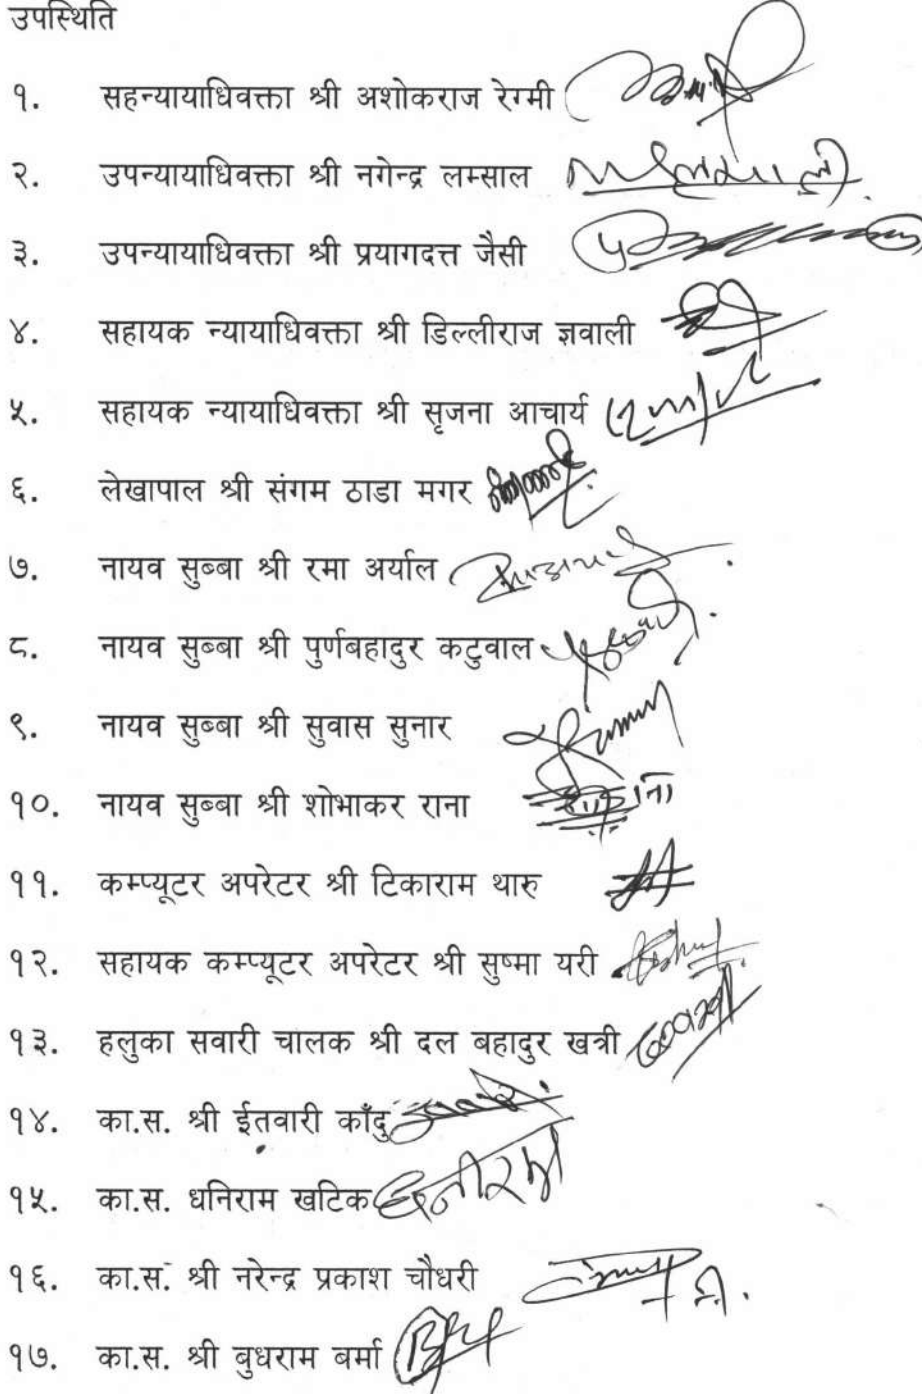 उपस्थिति
१. सहन्यायाधिवक्ता श्री अशोकराज रेग्मी
२. उपन्यायाधिवक्ता श्री नगेन्द्र लम्साल
३. उपन्यायाधिवक्ता श्री प्रयागदत्त जैसी
४. सहायक न्यायाधिवक्ता श्री डिल्लीराज ज्ञवाली
५. सहायक न्यायाधिवक्ता श्री सृजना आचार्य
६. लेखापाल श्री संगम ठाडा मगर
७. नायव सुब्बा श्री रमा अर्याल
८. नायव सुब्बा श्री पुर्णबहादुर कटुवाल
९. नायव सुब्बा श्री सुवास सुनार
१०. नायव सुब्बा श्री शोभाकर राना
११. कम्प्यूटर अपरेटर श्री टिकाराम थारु
१२. सहायक कम्प्यूटर अपरेटर श्री सुष्मा यरी
१३. हलुका सवारी चालक श्री दल बहादुर खत्री
१४. का.स. श्री ईतवारी काँदु
१५. का.स. धनिराम खटिक
१६. का.स. श्री नरेन्द्र प्रकाश चौधरी
१७. का.स. श्री बुधराम बर्मा